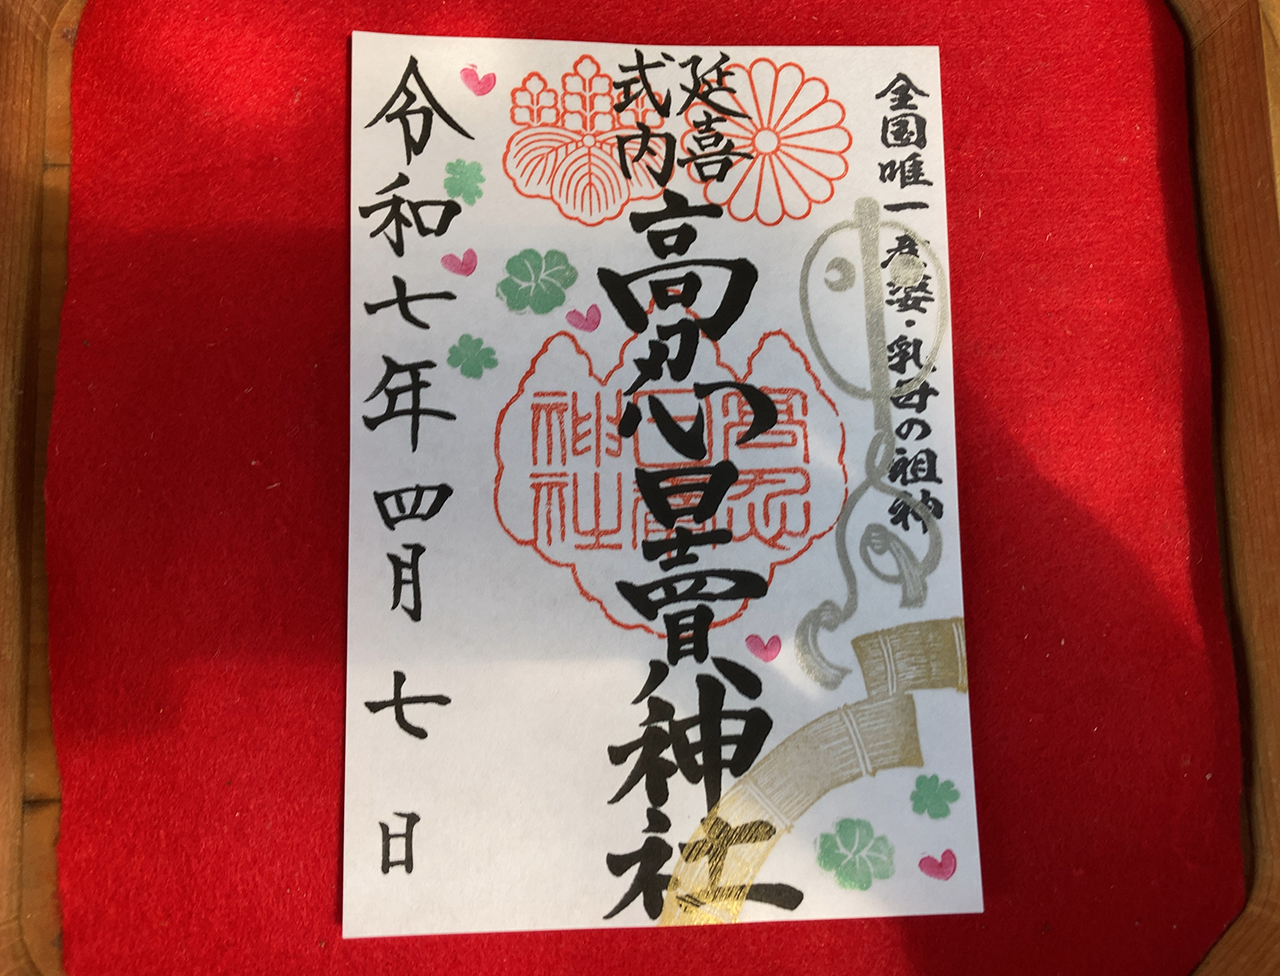 全国唯一 産婆・乳母の祖神
延喜
式内
高忍日賣神社
高忍
日賣
神社
令和七年四月七日